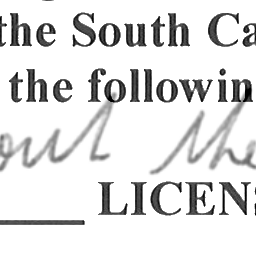 the South Ca
the followin
out the
LICENS